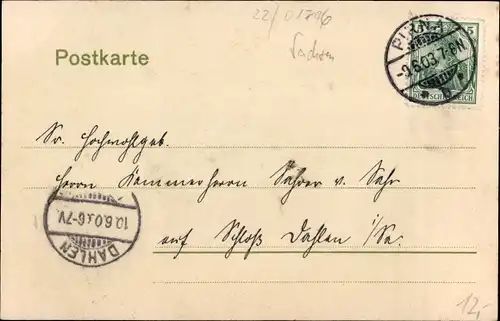 22/01776
Sachsen
Postkarte
PIRNA
-9.6.03.7-8N.
* b *
5
DEUTSCHES REICH
Sr. Hochwohlgeb.
Herrn Kammerherrn Sahrer v. Sahr
10.6.03.6-7V.
DAHLEN
auf Schloß Dahlen i/Sa.
12,-